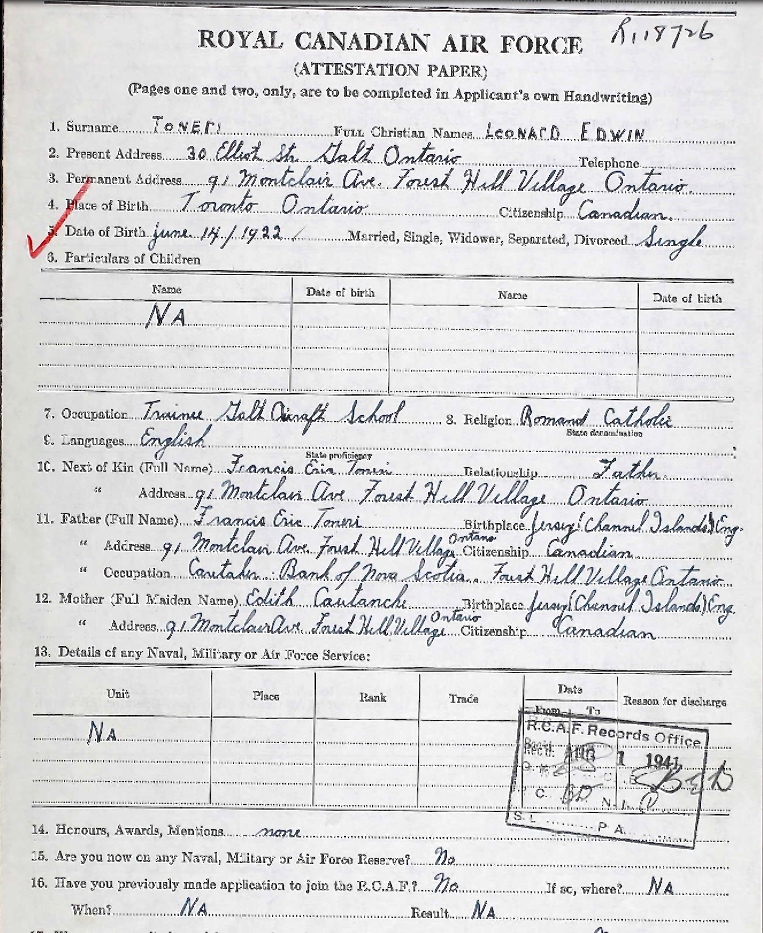 R118726
ROYAL CANADIAN AIR FORCE
(ATTESTATION PAPER)
(Pages one and two, only, are to be completed in Applicant's own Handwriting)
1. Surname TONERI Full Christian Names LEONARD EDWIN
2. Present Address 30 Elliot Str. Galt Ontario Telephone
3. Permanent Address 91 Montclair Ave. Forest Hill Village Ontario.
4. Place of Birth Toronto Ontario Citizenship Canadian.
5. Date of Birth june 14/1922 Married, Single, Widower, Separated, Divorced Single
6. Particulars of Children
Name Date of birth Name Date of birth
NA
7. Occupation Trainee Galt Aircraft School 8. Religion Roman Catholic
State denomination
9. Languages English
State proficiency
10. Next of Kin (Full Name) Francis Eric Toneri Relationship Father
" Address 91 Montclair Ave Forest Hill Village Ontario
11. Father (Full Name) Francis Eric Toneri Birthplace Jersey (Channel Islands) Eng.
" Address 91 Montclair Ave. Forest Hill Village Ontario Citizenship Canadian
" Occupation Caretaker Bank of Nova Scotia Forest Hill Village Ontario
12. Mother (Full Maiden Name) Edith Birthplace Jersey (Channel Islands) Eng.
" Address 91 Montclair Ave. Forest Hill Village Ontario Citizenship Canadian
13. Details of any Naval, Military or Air Force Service:
Unit Place Rank Trade Date From To Reason for discharge
NA
R.C.A.F. Records Office
AUG 1 1941
14. Honours, Awards, Mentions none
15. Are you now on any Naval, Military or Air Force Reserve? No
16. Have you previously made application to join the R.C.A.F.? No If so, where? NA
When? NA Result NA